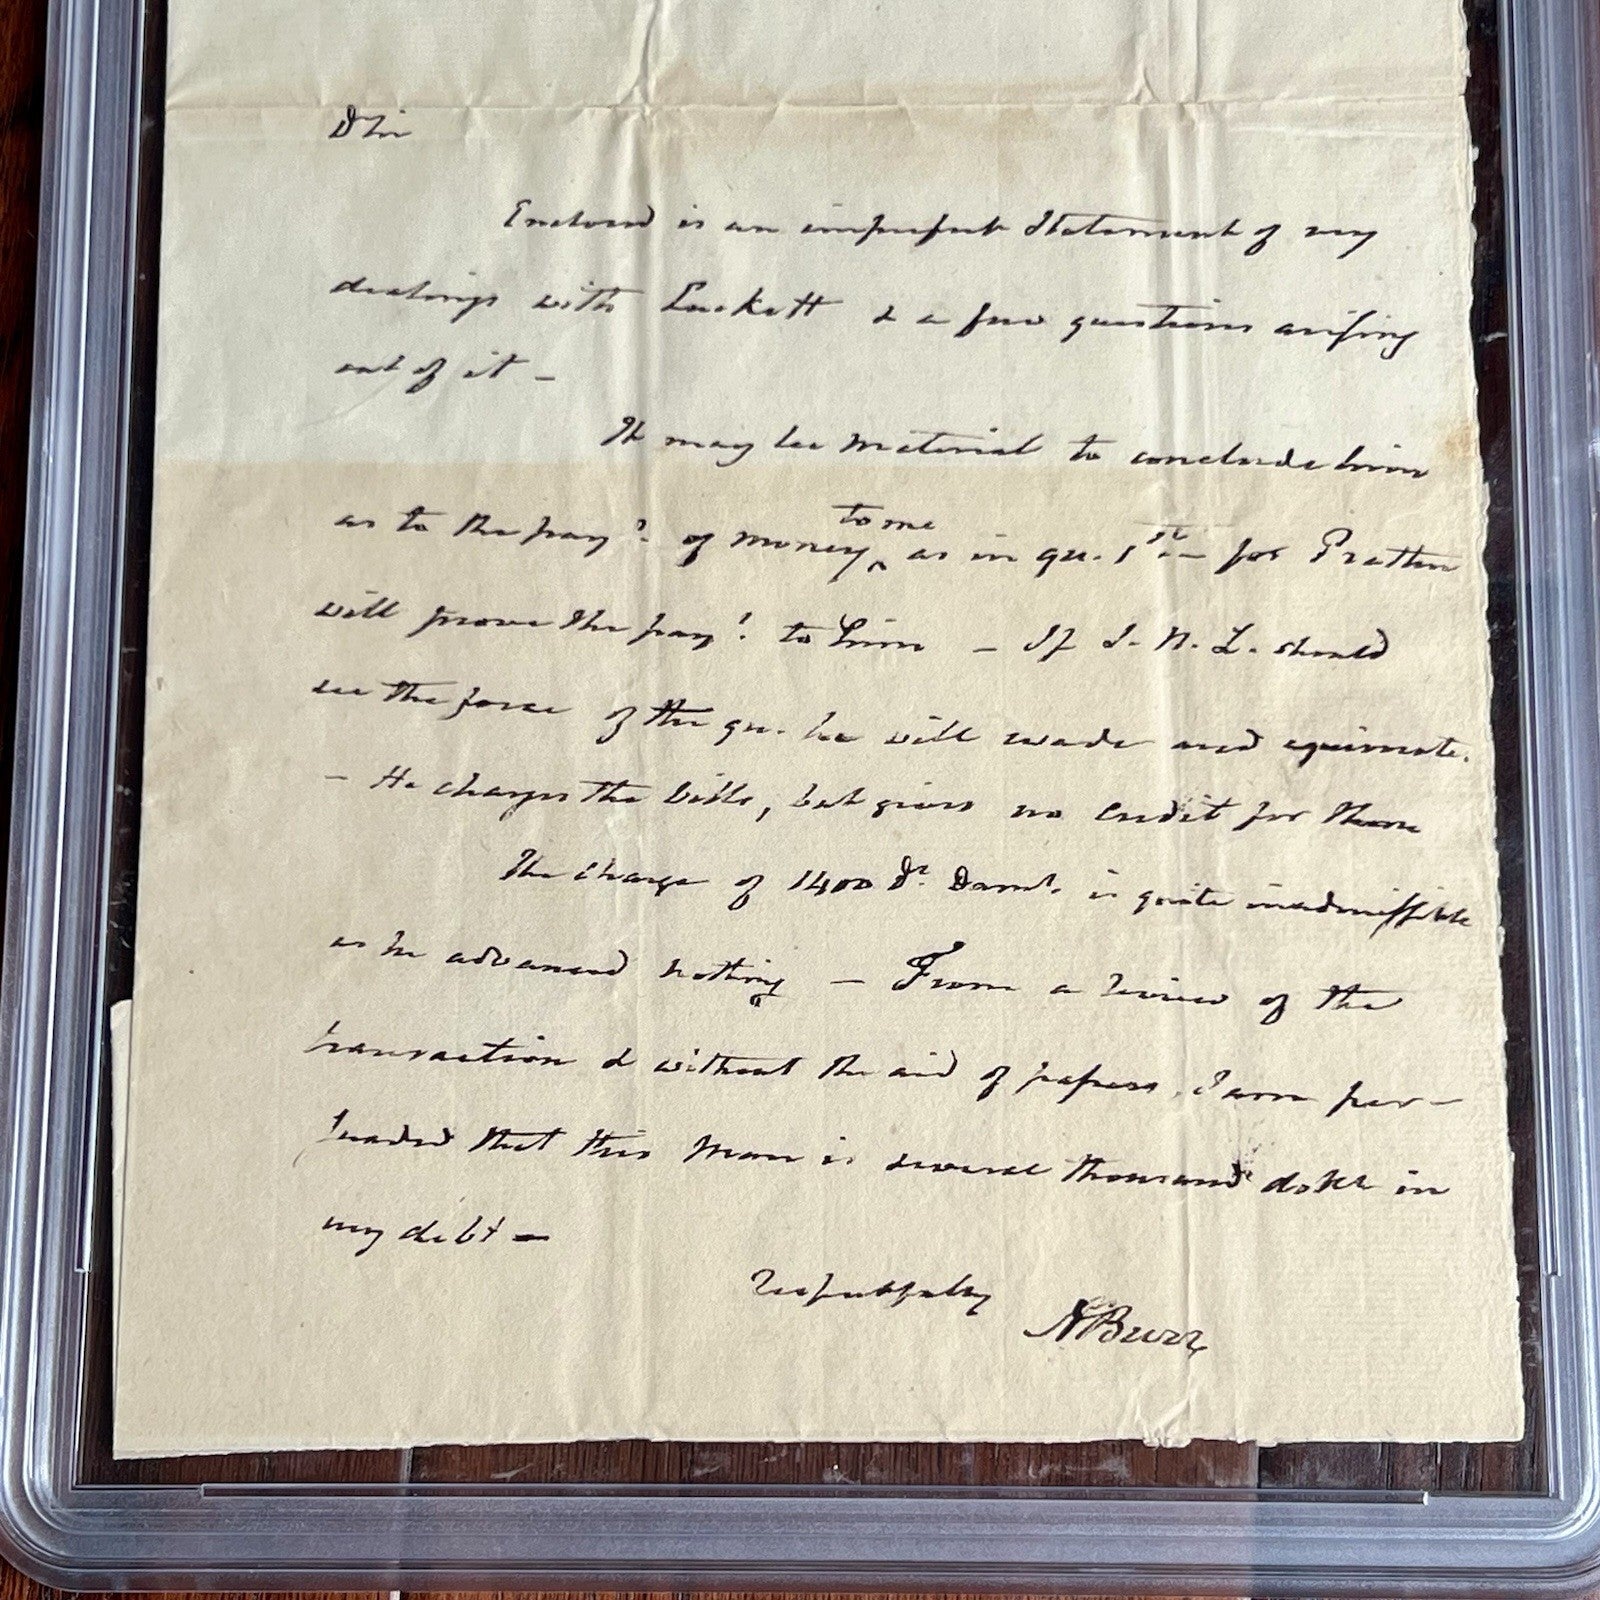 D Sir
Enclosed is an imperfect Statement of my
dealings with Luckett & a few questions arising
out of it —
It may be material to conclude him
as to the paymt. of money ^to me as in qu. 1st — for Pratten
will prove the paymt. to him — If J. N. L. should
see the force of the qu. he will evade and equivocate.
— He charges the bills, but gives no credit for them
The charge of 1400 Dr. is quite inadmissible
as he advanced nothing — From a review of the
transaction & without the aid of papers, I am per-
suaded that this man is several thousand dolls in
my debt —
Respectfully
A Burr